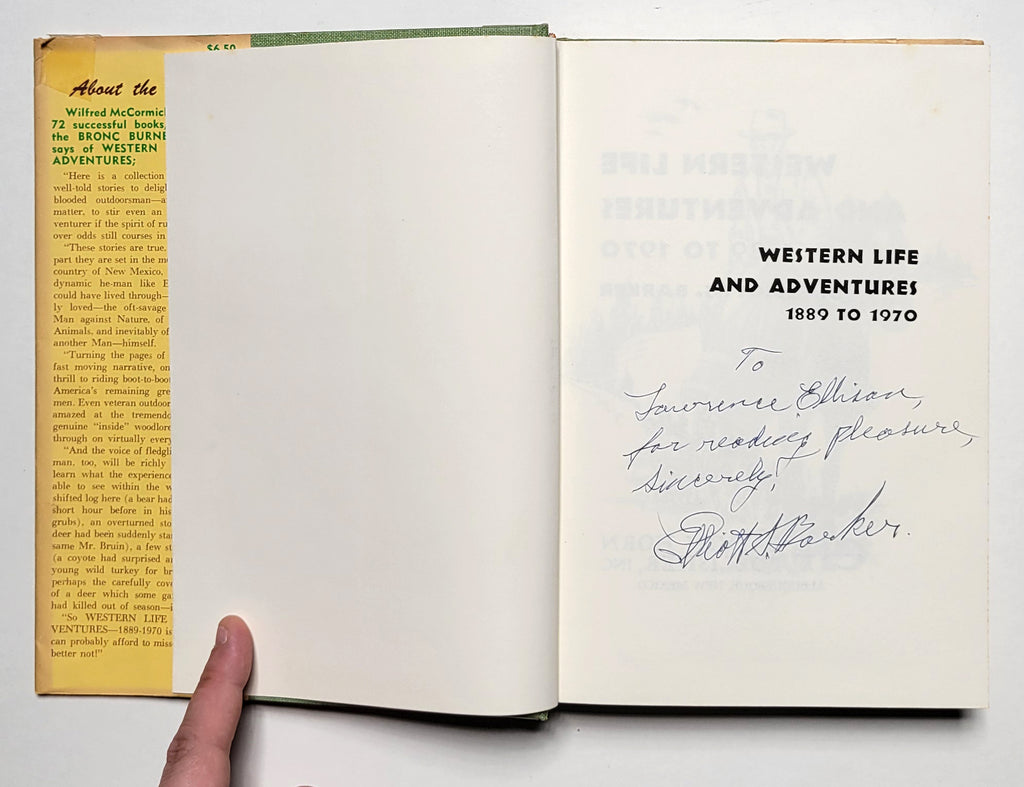 $6.50
About the
Wilfred McCormic
72 successful books,
the BRONC BURNE
says of WESTERN
ADVENTURES;
"Here is a collection
well-told stories to delig
blooded outdoorsman—a
matter, to stir even an
venturer if the spirit of ru
over odds still courses in
"These stories are true.
part they are set in the m
country of New Mexico.
dynamic he-man like E
could have lived through—
ly loved—the oft-savage
Man against Nature, of
Animals, and inevitably of
another Man—himself.
"Turning the pages of
fast moving narrative, on
thrill to riding boot-to-boot
America's remaining gre
men. Even veteran outdoor
amazed at the tremendo
genuine "inside" woodlore
through on virtually every
"And the voice of fledgli
man, too, will be richly
learn what the experience
able to see within the w
shifted log here (a bear had
short hour before in his
grubs), an overturned sto
deer had been suddenly sta
same Mr. Bruin), a few st
(a coyote had surprised a
young wild turkey for br
perhaps the carefully cove
of a deer which some ga
had killed out of season—i
"So WESTERN LIFE
VENTURES—1889-1970 is
can probably afford to miss
better not!"
WESTERN LIFE
AND ADVENTURES
1889 TO 1970
To
Lawrence Ellison,
for reading pleasure,
Sincerely,
Elliott S. Barker.